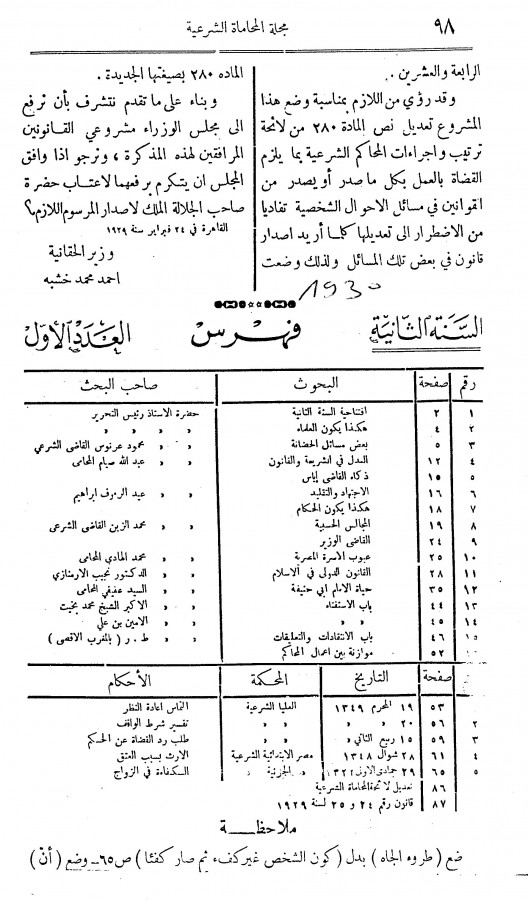 ٩٨
مجلة المحاماة الشرعية
الرابعة والعشرين .
وقد رؤي من اللازم بمناسبة وضع هذا
المشروع تعديل نص المادة ٢٨٠ من لائحة
ترتيب واجراءات المحاكم الشرعية بما يلزم
القضاة بالعمل بكل ما صدر أو يصدر من
القوانين في مسائل الاحوال الشخصية تفاديا
من الاضطرار الى تعديلها كلما أريد اصدار
قانون في بعض تلك المسائل ولذلك وضعت
الماده ٢٨٠ بصيغتها الجديدة .
وبناء على ما تقدم نتشرف بأن نرفع
الى مجلس الوزراء مشروعي القانونين
المرافقين لهذه المذكرة ، ونرجو اذا وافق
المجلس ان يتكرم برفعهما لاعتاب حضرة
صاحب الجلالة الملك لاصدار المرسوم اللازم ؟
القاهرة في ٢٤ فبراير سنة ١٩٢٩
وزير الحقانية
احمد محمد خشبه
1930
السنة الثانية فهرس العدد الأول
رقم صفحة البحوث صاحب البحث
١ ٢ افتتاحية السنة الثانية حضرة الاستاذ رئيس التحرير
٢ ٤ هكذا يكون العلماء » » » »
٣ ٥ بعض مسائل الحضانة » » محمود عرنوس القاضى الشرعي
٤ ١٢ العدل في الشريعة والقانون » » عبد الله صيام المحامى
٥ ١٥ ذكاء القاضى إياس
٦ ١٦ الاجتهاد والتقليد » » عبد الرءوف ابراهيم
٧ ١٨ هكذا يكون الحكام
٨ ١٩ المجالس الحسبية » » محمد الزين القاضى الشرعي
٩ ٢٤ القاضى الوزير
١٠ ٢٥ عيوب الأسرة المصرية » » محمد الهادي المحامى
١١ ٢٨ القانون الدولى في الاسلام » » الدكتور نجيب الارمنازي
١٢ ٣٥ حياة الامام ابى حنيفة » » السيد عفيفي المحامى
١٣ ٤٤ باب الاستفتاء » » الاكبر الشيخ محمد بخيت
١٤ ٤٥ » » » » الامين بن علي
١٥ ٤٦ باب الانتقادات والتعليقات » » ط . ر ( بالمغرب الاقصى )
٥٢ موازنة بين اعمال المحاكم
صفحة التاريخ المحكمة الأحكام
٥٣ ١٩ المحرم ١٣٤٩ العليا الشرعية التماس اعادة النظر
٢ ٥٦ ٢٠ » » » » تفسير شرط الواقف
٣ ٥٩ ١٥ ربيع الثاني » » » طلب رد القضاة عن الحكم
٤ ٦١ ٢٨ شوال ١٣٤٨ مصر الابتدائية الشرعية الارث بسبب العتق
٥ ٦٥ ٢٩ جمادى الاولى » الجزئية » الكفاءة في الزواج
٨٦ تعديل لائحة المحاماة الشرعية
٨٧ قانون رقم ٢٤ و ٢٥ لسنة ١٩٢٩
ملاحظة
ضع ( طروه الجاه ) بدل ( كون الشخص غير كفء ثم صار كفئا ) ص٦٥ــ وضع ( أنّ )